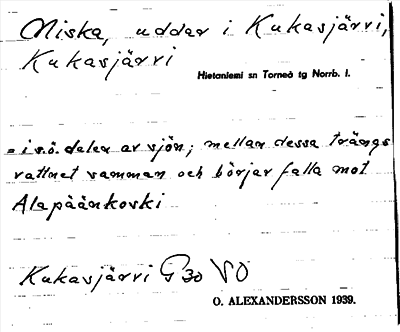 Niska, uddar i Kukasjärvi,
Kukasjärvi
Hietaniemi sn Torneå tg Norrb. l.
= i s.ö. delen av sjön; mellan dessa trängs
vattnet samman och börjar falla mot
Alapäänkoski
Kukasjärvi G 30 VO
O. ALEXANDERSSON 1939.